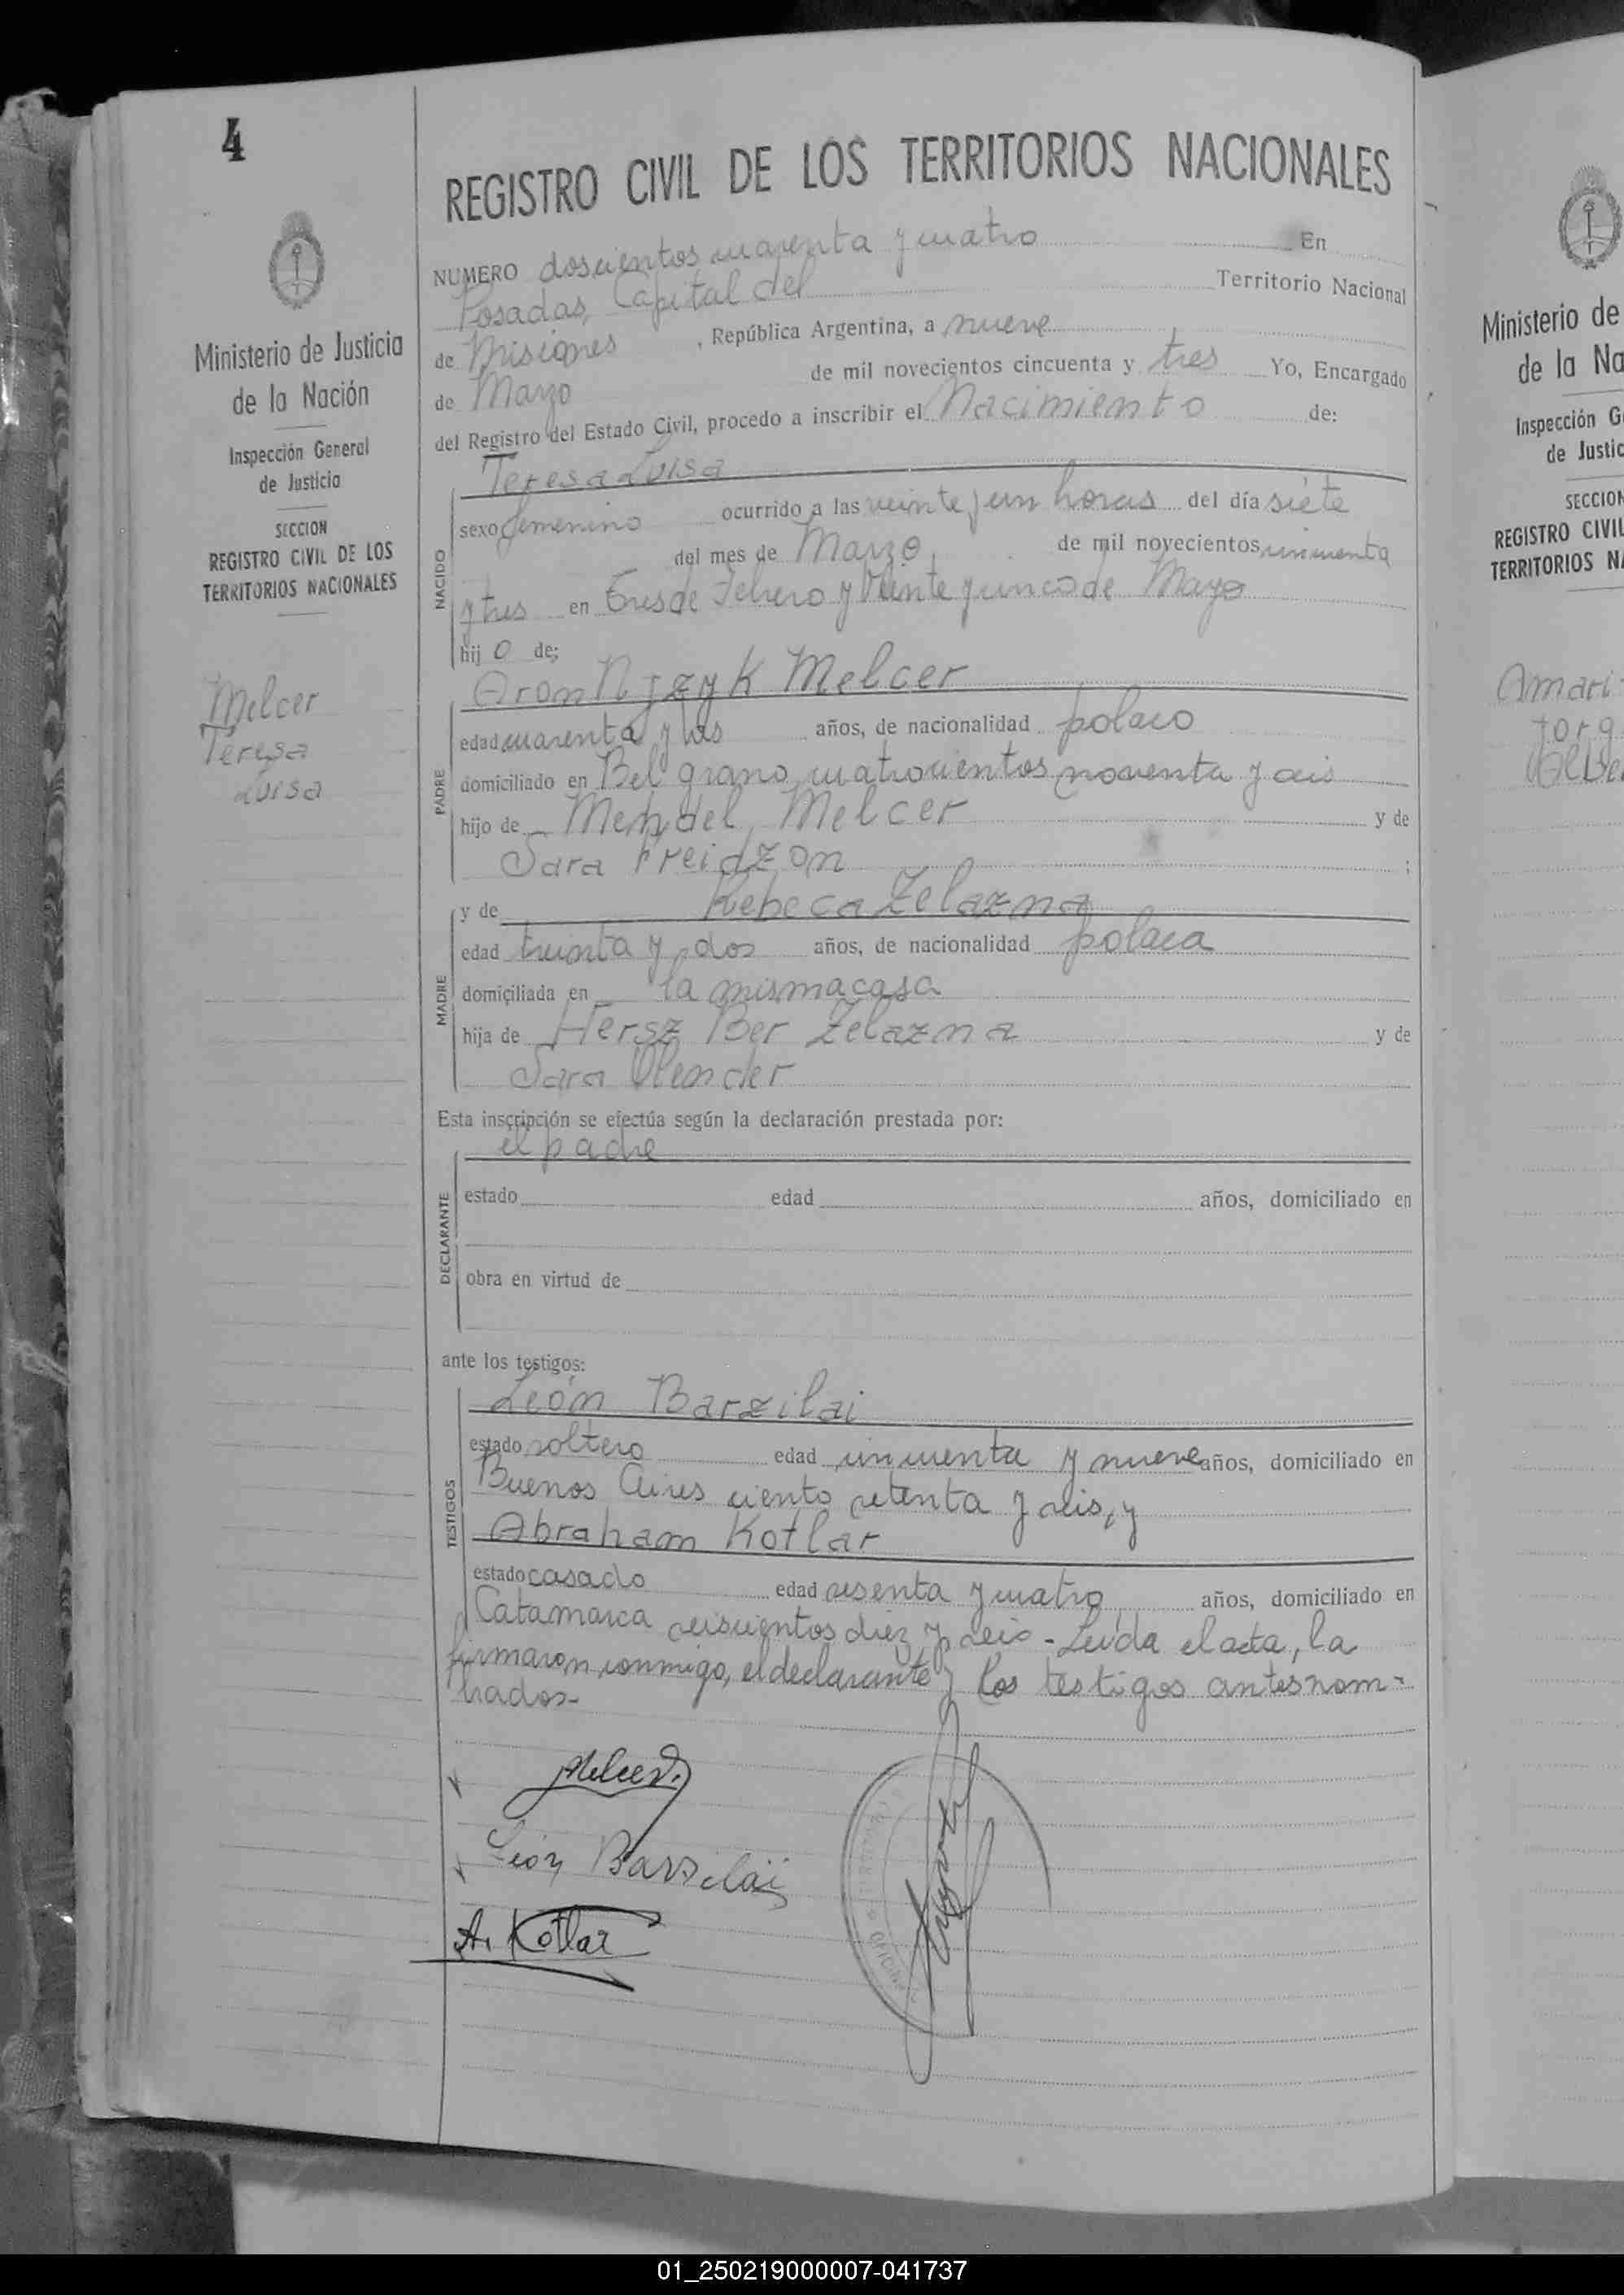 4
REGISTRO CIVIL DE LOS TERRITORIOS NACIONALES
NUMERO doscientos cuarenta y cuatro En
Posadas, Capital del Territorio Nacional
de Misiones, República Argentina, a nueve
de Marzo de mil novecientos cincuenta y tres Yo, Encargado
del Registro del Estado Civil, procedo a inscribir el Nacimiento de:
Teresa Luisa
NACIDO
sexo femenino ocurrido a las veinte y un horas del día siete
del mes de Marzo de mil novecientos cincuenta
y tres en Tres de Febrero y Veinte y cinco de Mayo
hij o de;
Aron Melcer
PADRE
edad cuarenta y tres años, de nacionalidad polaco
domiciliado en Belgrano cuatrocientos noventa y seis
hijo de Mendel Melcer y de
Sara Freidzon ;
y de Rebeca Zelazna
MADRE
edad treinta y dos años, de nacionalidad polaca
domiciliada en la misma casa
hija de Hersz Ber Zelazna y de
Sara Olender
Esta inscripción se efectúa según la declaración prestada por:
el padre
DECLARANTE
estado edad años, domiciliado en
obra en virtud de
ante los testigos:
León Barzilai
TESTIGOS
estado soltero edad cincuenta y nueve años, domiciliado en
Buenos Aires ciento setenta y seis, y
Abraham Kotlar
estado casado edad sesenta y cuatro años, domiciliado en
Catamarca seiscientos diez y seis - Leída el acta, la
firmaron conmigo, el declarante y los testigos antes nom-
brados-
Melcer
León Barzilai
A. Kotlar
Ministerio de Justicia
de la Nación
Inspección General
de Justicia
SECCION
REGISTRO CIVIL DE LOS
TERRITORIOS NACIONALES
Melcer
Teresa
Luisa
Ministerio de
de la Na
Inspección G
de Justic
SECCION
REGISTRO CIVIL
TERRITORIOS N
Amari
Jorg
Albe
01_250219000007-041737